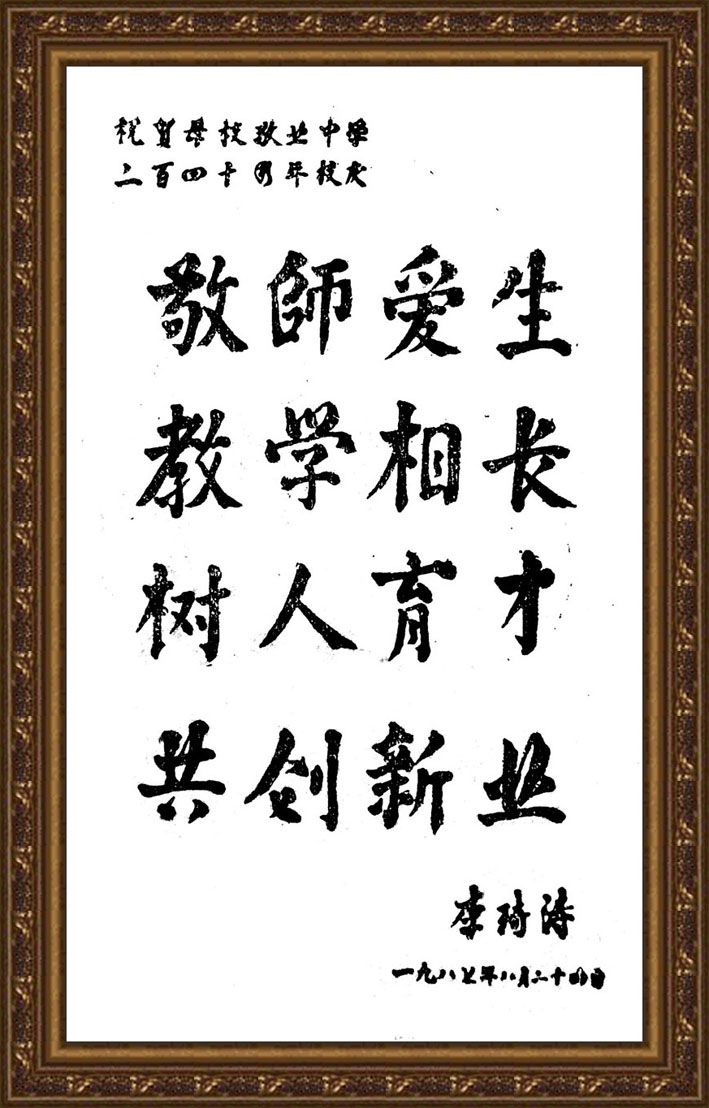 祝贺母校敬业中学
二百四十周年校庆
敬師爱生
教学相长
树人育才
共创新业
李琦涛
一九八七年八月二十四日